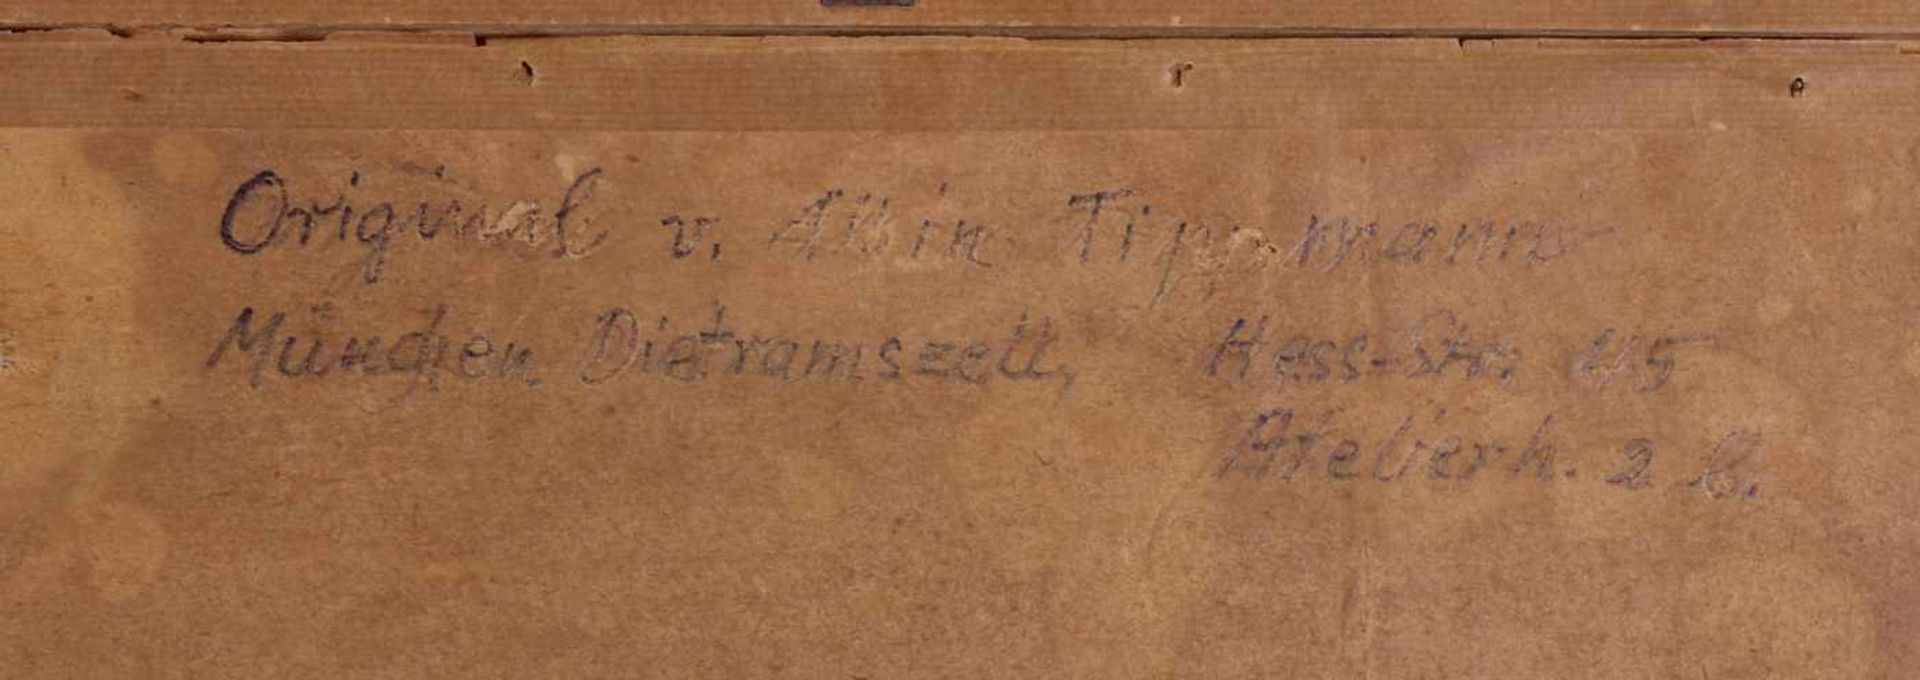 Original v. Albin Tippmann
München Dietramszell, Hess-Str. 45
Atelierh. 2 b.